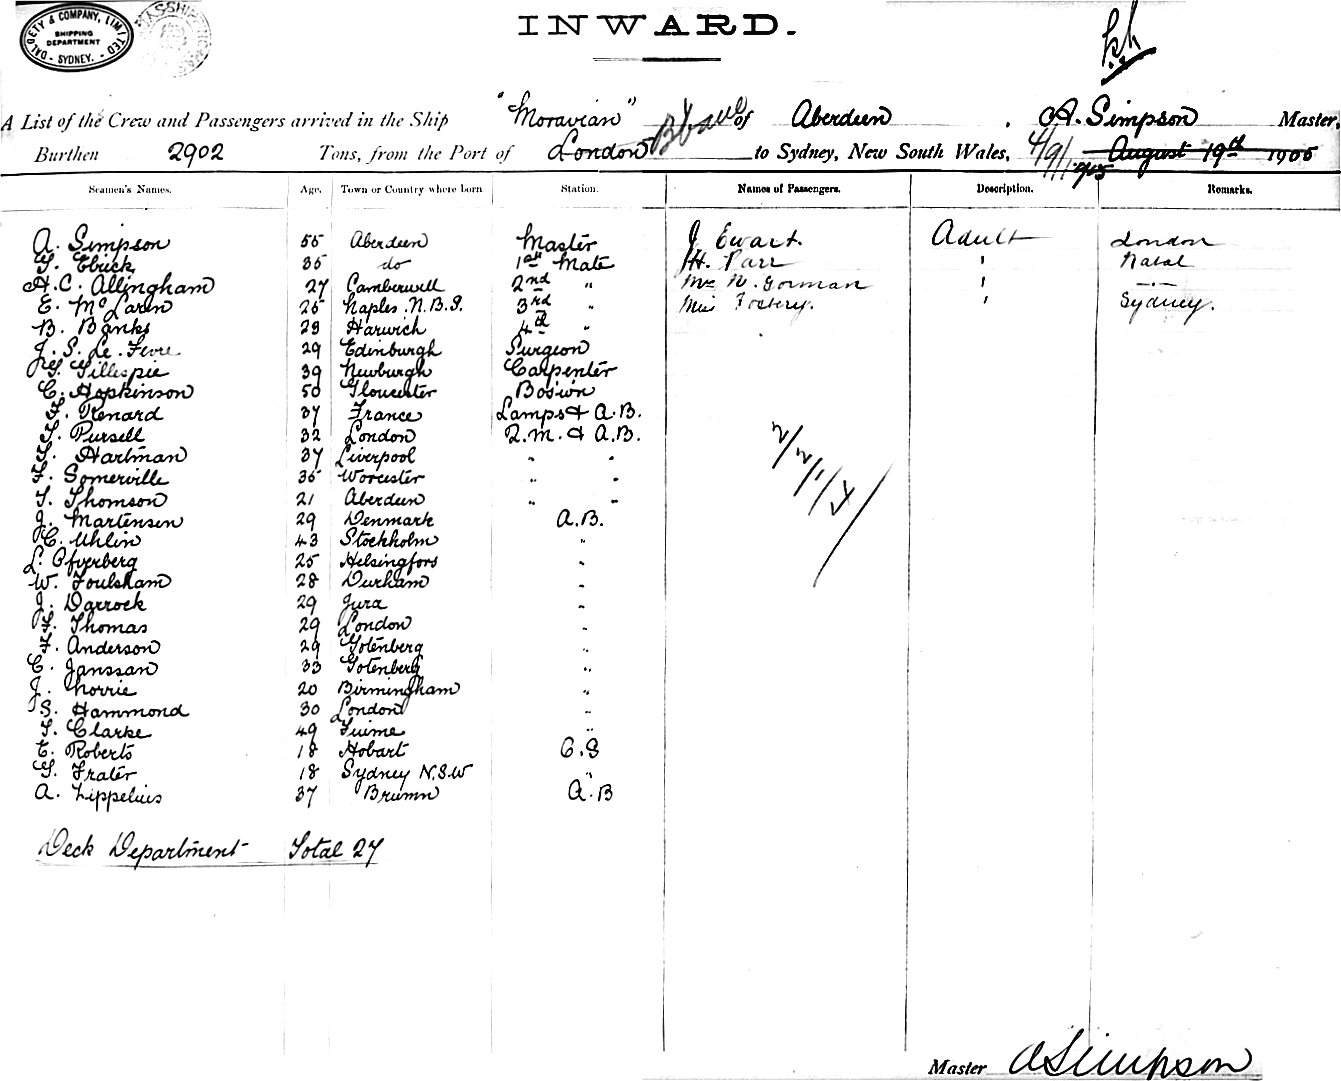 DALGETY & COMPANY, LIMITED
SHIPPING DEPARTMENT
- SYDNEY. -
INWARD.
A List of the Crew and Passengers arrived in the Ship "Moravian" of Aberdeen, A. Simpson Master,
Burthen 2902 Tons, from the Port of London to Sydney, New South Wales, 4/9/1905 August 19th 1905
Seamen's Names. Age. Town or Country where born Station. Names of Passengers. Description. Remarks.
A. Simpson 55 Aberdeen Master J Ewart. Adult London
Ebrick 35 do 1st Mate H. Parr " Natal
A. C. Allingham 27 Camberwell 2nd " Mrs N. Gorman " "
E. McLaren 25 Naples. N.B.S. 3rd " Miss " Sydney.
B. Banks 28 Harwich 4th "
J. S. Le. Fevre 29 Edinburgh Surgeon
Gillespie 39 Newburgh Carpenter
C. Hopkinson 50 Gloucester Bos'wn
F. Renard 37 France Lamps & A.B.
Pursell 32 London Q.M. & A.B.
Hartman 37 Liverpool " "
F. Somerville 35 Worcester " "
T. Thomson 21 Aberdeen " "
J. Martensen 29 Denmark A.B.
C. Uhlin 43 Stockholm "
L. Ofverberg 25 Helsingfors "
W. Foulsham 28 Durham "
J. Darrock 29 Jura "
Thomas 29 London "
F. Anderson 29 Gotenberg "
C. Janssan 33 Gotenberg "
J. Norrie 20 Birmingham "
S. Hammond 30 London "
T. Clarke 49 Fiume "
E. Roberts 18 Hobart O.S
G. Frater 18 Sydney N.S.W "
A. Lippelius 37 Brumn A.B
2/2/1/4/
Deck Department Total 27
Master A Simpson